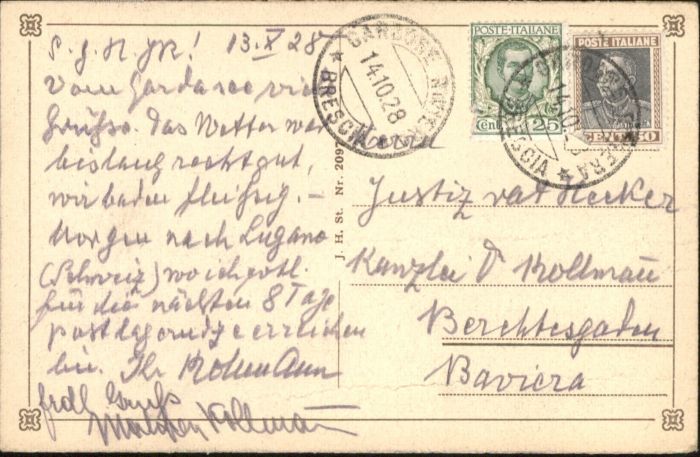 S. g. H. JR! 13.X 28
Vom Gardasee viele
Grüsse. Das Wetter war
bislang recht gut,
wir baden fleissig. —
Morgen nach Lugano
(Schweiz) wo ich evtl.
für die nächsten 8 Tage
postlagernd zu erreichen
bin. Ihr Kollmann
frdl Gruß
Kollmann
J. H. St. Nr. 2097
GARDONE RIVIERA
14.10.28
★ BRESCIA ★
POSTE·ITALIANE
Cent 25
POSTE ITALIANE
CENT 50
GARDONE RIVIERA
14.10.28
BRESCIA ★
Herrn
Justizrat Hecker
Kanzlei D Kollmann
Berchtesgaden
Baviera